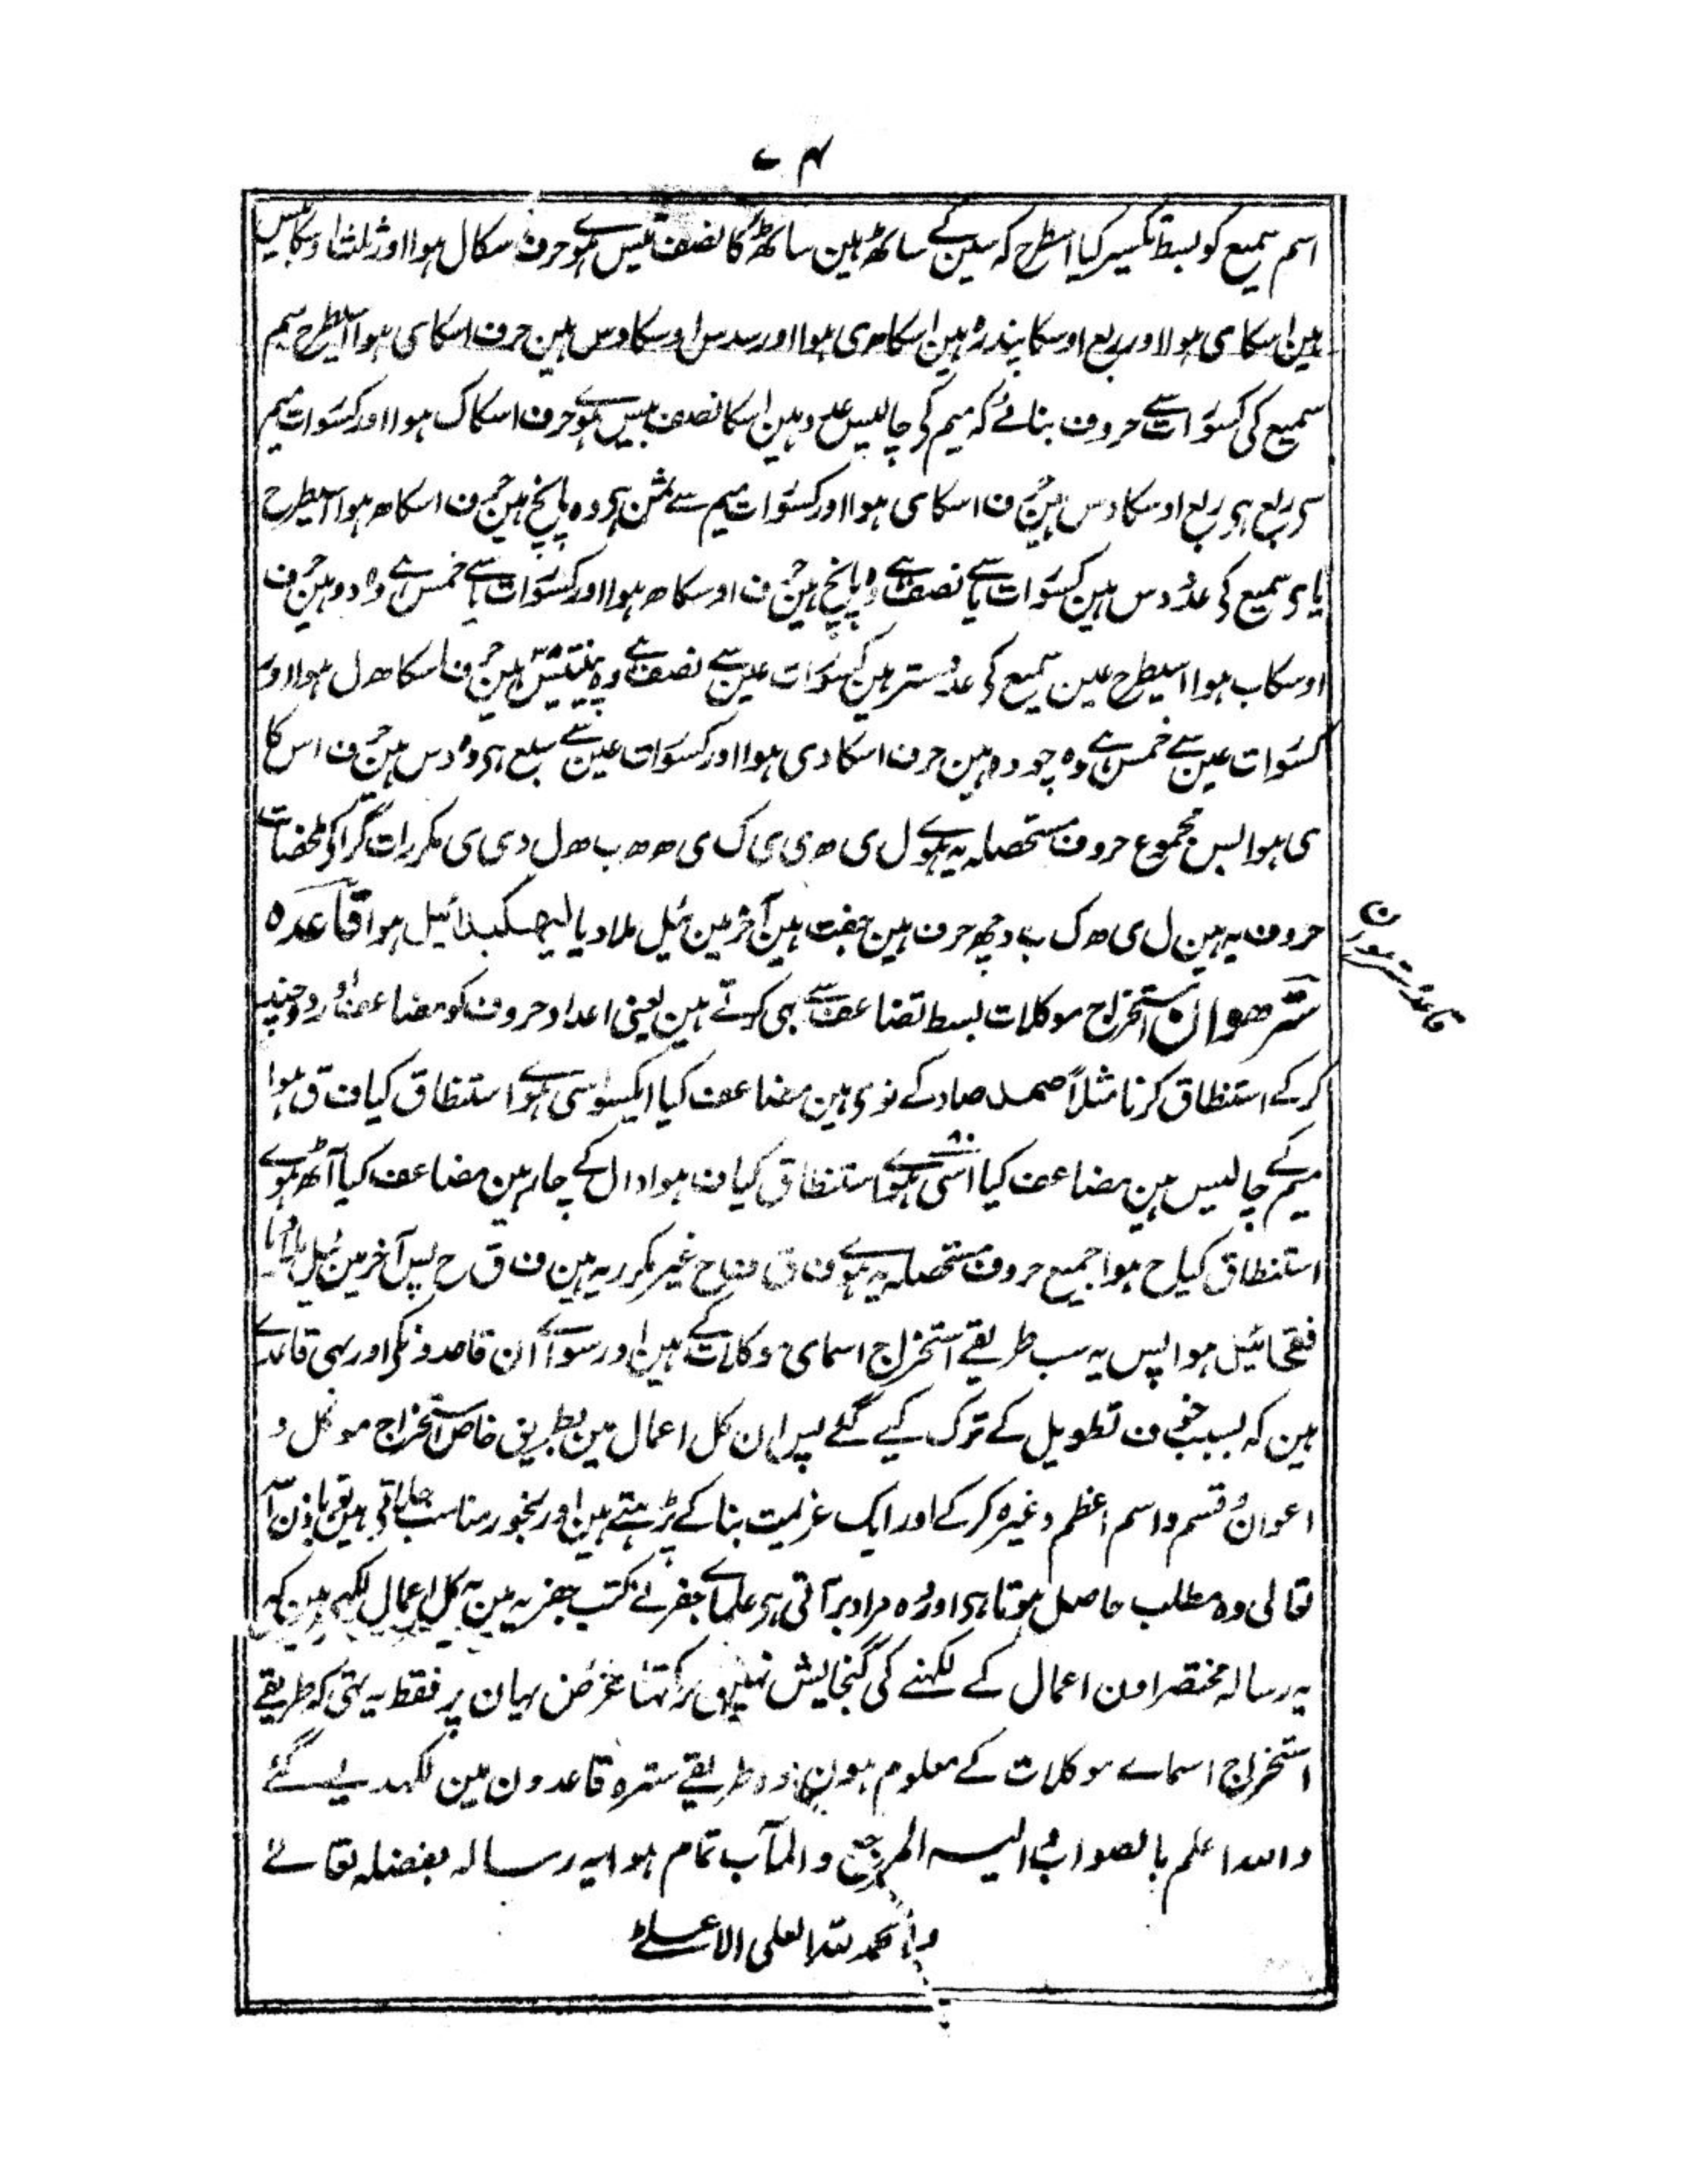 ۷۴
اسم سمیع کو بسط تکسیر کیا اسطرح کہ سین کے ساٹھ ہین ساٹھ کا نصف تیس ہوے حرف اسکا ل ہوا اور ثلث اوسکا بیس
ہین اسکا ی ہوا اور ربع اوسکا پندرہ ہین اسکا ہ ی ہوا اور سدس اوسکا دس ہین حرف اسکا ی ہوا اسیطرح میم
سمیع کی کسورات سے حروف بنائے کہ میم کی چالیس عدد ہین اسکا نصف بیس ہوے حرف اسکا ک ہوا اور کسورات میم
سی ربع ہی ربع اوسکا دس ہین حرف اسکا ی ہوا اور کسورات میم سے ثمن ہی وہ پانچ ہین حرف اسکا ہ ہوا اسیطرح
یای سمیع کی عدد دس ہین کسورات یا سے نصف ہے وہ پانچ ہین حرف اوسکا ہ ہوا اور کسورات یا سے خمس ہے وہ دو ہین حرف
اوسکا ب ہوا اسیطرح عین سمیع کی عدد ستر ہین کسورات عین سے نصف ہے وہ پینتیس ہین حرف اسکا ہ ل ہوا اور
کسورات عین سے خمس ہے وہ چودہ ہین حرف اسکا د ی ہوا اور کسورات عین سے سبع ہی وہ دس ہین حرف اس کا
ی ہوا پس مجموع حروف مستحصلہ یہ ہوے ل ی ہ ی ی ک ی ہ ہ ب ہ ل د ی ی مکررات گرا کی ملخضات
حروف یہ ہین ل ی ہ ک ب د چھ حرف ہین جفت ہین آخر مین ئیل ملا دیا لیہکبدائیل ہوا قاعدہ
سترھوان استخراج موکلات بسط تضاعف سے بہی کرتے ہین یعنی اعداد حروف کو مضاعف اور دوچند
کر کے استنطاق کرنا مثلاً صمد صاد کے نوی ہین مضاعف کیا ایکسو اسی ہوے استنطاق کیا ف ق ہوا
میم کے چالیس ہین مضاعف کیا اسّی ۸۰ ہوے استنطاق کیا ف ہوا دال کے چار ہین مضاعف کیا آٹھ ہوے
استنطاق کیا ح ہوا جمیع حروف مستحصلہ یہ ہوے ف ق ف ح غیر مکرر یہ ہین ف ق ح پس آخر مین ئیل ملا دیا
فقحائیل ہوا پس یہ سب طریقے استخراج اسمای موکلات کے ہین اور سواے ان قاعدونکی اور بہی قاعدے
ہین کہ بسبب خوف تطویل کے ترک کیے گئے پس ان کل اعمال مین بطریق خاص استخراج موکل و
اعوان و قسم و اسم اعظم وغیرہ کر کے اور ایک عزیمت بنا کے پڑہتے ہین اور بخور مناسب جلاتی ہین باذن اللہ
تعالی وہ مطلب حاصل ہوتا ہی اور وہ مراد برآتی ہی علماے جفر نے کتب جفریہ مین یہ کل اعمال لکھے ہین کہ
یہ رسالہ مختصر اون اعمال کے لکہنے کی گنجایش نہین رکہتا غرض یہان پر فقط یہ تہی کہ طریقے
استخراج اسماے موکلات کے معلوم ہون وہ طریقے سترہ قاعدون مین لکہدیے گئے
واللہ اعلم بالصواب والیہ المرجع والمآب تمام ہوا یہ رسالہ بفضلہ تعالے
والحمد للہ العلی الاعلے
قاعدہ سترہوان